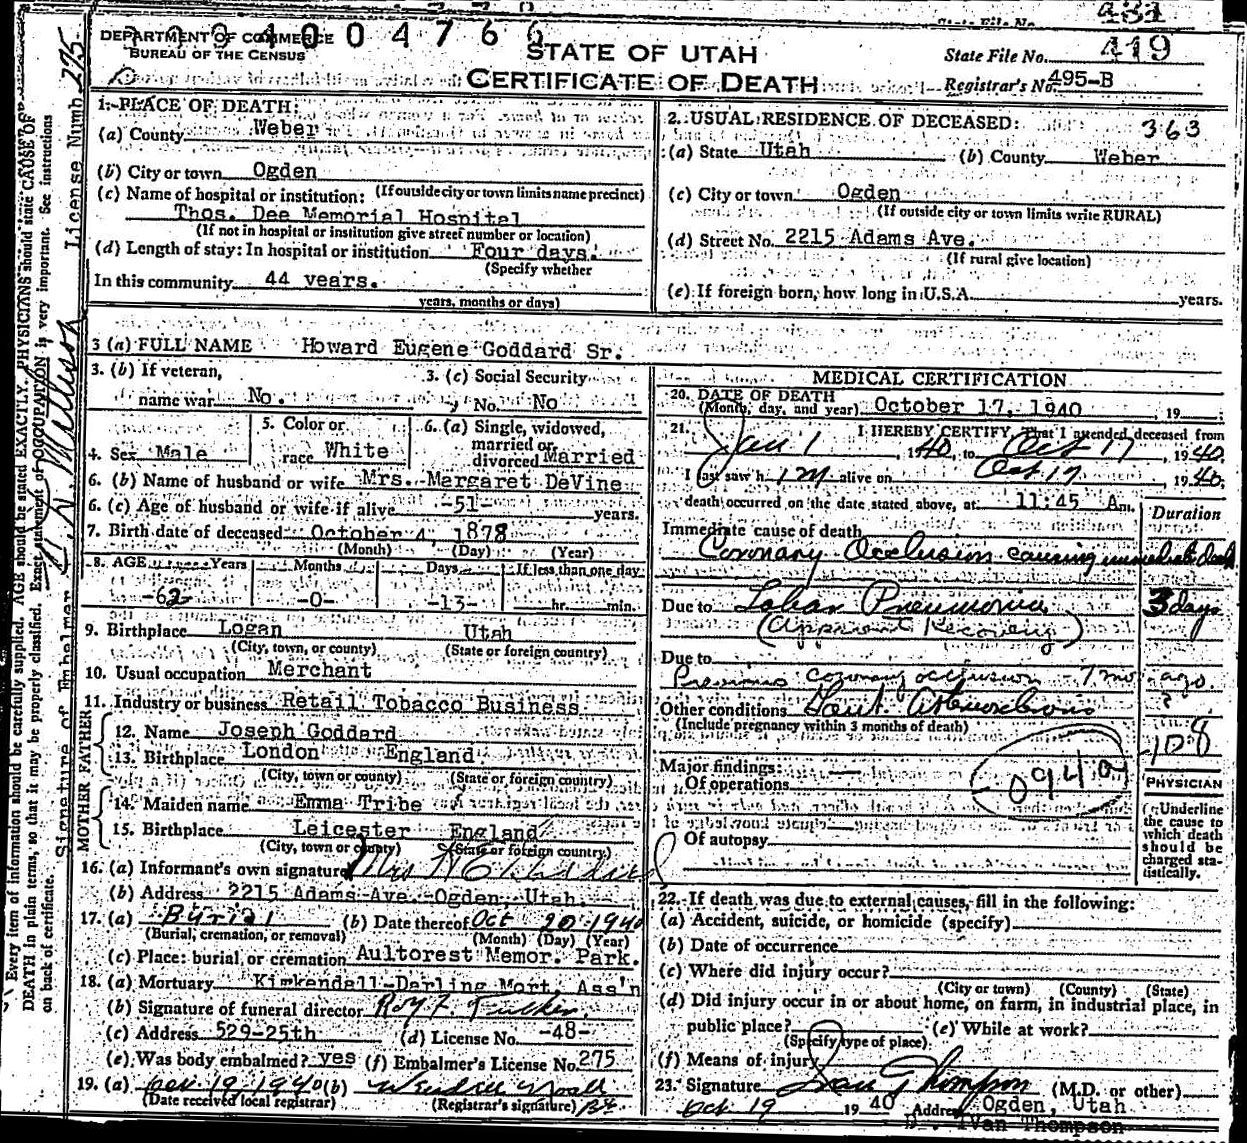 DEPARTMENT OF COMMERCE
BUREAU OF THE CENSUS
STATE OF UTAH
CERTIFICATE OF DEATH
State File No. 419
Registrar's No. 495-B
1. PLACE OF DEATH:
(a) County Weber
(b) City or town Ogden
(If outside city or town limits name precinct)
(c) Name of hospital or institution:
Thos. Dee Memorial Hospital
(If not in hospital or institution give street number or location)
(d) Length of stay: In hospital or institution Four days.
(Specify whether
In this community 44 years.
years, months or days)
2. USUAL RESIDENCE OF DECEASED: 363
(a) State Utah (b) County Weber
(c) City or town Ogden
(If outside city or town limits write RURAL)
(d) Street No. 2215 Adams Ave.
(If rural give location)
(e) If foreign born, how long in U.S.A. years.
3 (a) FULL NAME Howard Eugene Goddard Sr.
3. (b) If veteran, name war No.
3. (c) Social Security No. No
4. Sex Male
5. Color or race White
6. (a) Single, widowed, married or divorced Married
6. (b) Name of husband or wife Mrs. Margaret DeVine
6. (c) Age of husband or wife if alive -51- years.
7. Birth date of deceased October 4, 1878
(Month) (Day) (Year)
8. AGE Years Months Days If less than one day
-62- -0- -13- hr. min.
9. Birthplace Logan Utah
(City, town, or county) (State or foreign country)
10. Usual occupation Merchant
11. Industry or business Retail Tobacco Business
FATHER
12. Name Joseph Goddard
13. Birthplace London England
(City, town or county) (State or foreign country)
MOTHER
14. Maiden name Emma Tribe
15. Birthplace Leicester England
(City, town or county) (State or foreign country)
16. (a) Informant's own signature Mrs H E Goddard
(b) Address 2215 Adams Ave. Ogden, Utah.
17. (a) Burial (b) Date thereof Oct 20 1940
(Burial, cremation, or removal) (Month) (Day) (Year)
(c) Place: burial or cremation Aultorest Memor. Park.
18. (a) Mortuary Kirkendall-Darling Mort. Ass'n
(b) Signature of funeral director
(c) Address 529-25th (d) License No. -48-
(e) Was body embalmed? yes (f) Embalmer's License No. 275
19. (a) Oct 19 1940 (b)
(Date received local registrar) (Registrar's signature)
MEDICAL CERTIFICATION
20. DATE OF DEATH
(Month, day, and year) October 17, 1940, 19
21. I HEREBY CERTIFY, That I attended deceased from
Jan 1, 1940, to Oct 17, 1940.
I last saw him alive on Oct 17, 1940;
death occurred on the date stated above, at 11:45 A.m.
Duration
Immediate cause of death
Coronary Occlusion causing immediate death
Due to Lobar Pneumonia 3 days
(Apparent Recovery)
Due to
Previous coronary occlusion 7 mo ago.
Other conditions ?
(Include pregnancy within 3 months of death)
108
Major findings:
Of operations
Of autopsy
PHYSICIAN
Underline the cause to which death should be charged statistically.
22. If death was due to external causes, fill in the following:
(a) Accident, suicide, or homicide (specify)
(b) Date of occurrence
(c) Where did injury occur?
(City or town) (County) (State)
(d) Did injury occur in or about home, on farm, in industrial place, in
public place? (e) While at work?
(Specify type of place)
(f) Means of injury
23. Signature Ivan Thompson (M.D. or other)
Oct 19 1940 Address Ogden, Utah
D. Ivan Thompson
Every item of information should be carefully supplied. AGE should be stated EXACTLY. PHYSICIANS should state CAUSE OF
DEATH in plain terms, so that it may be properly classified. Exact statement of OCCUPATION is very important. See instructions
on back of certificate.
Signature of Embalmer License Numb 275